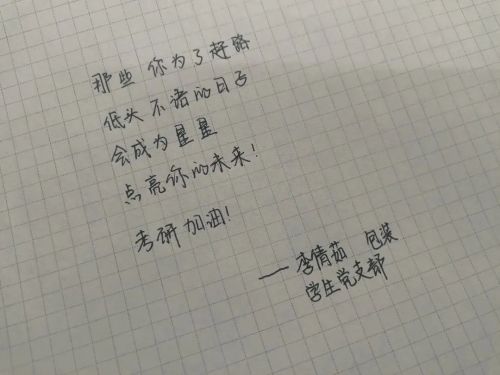 那些 你为了赶路
低头不语的日子
会成为星星
点亮你的未来!
考研加油!
—— 李倩茹 包装
学生党支部